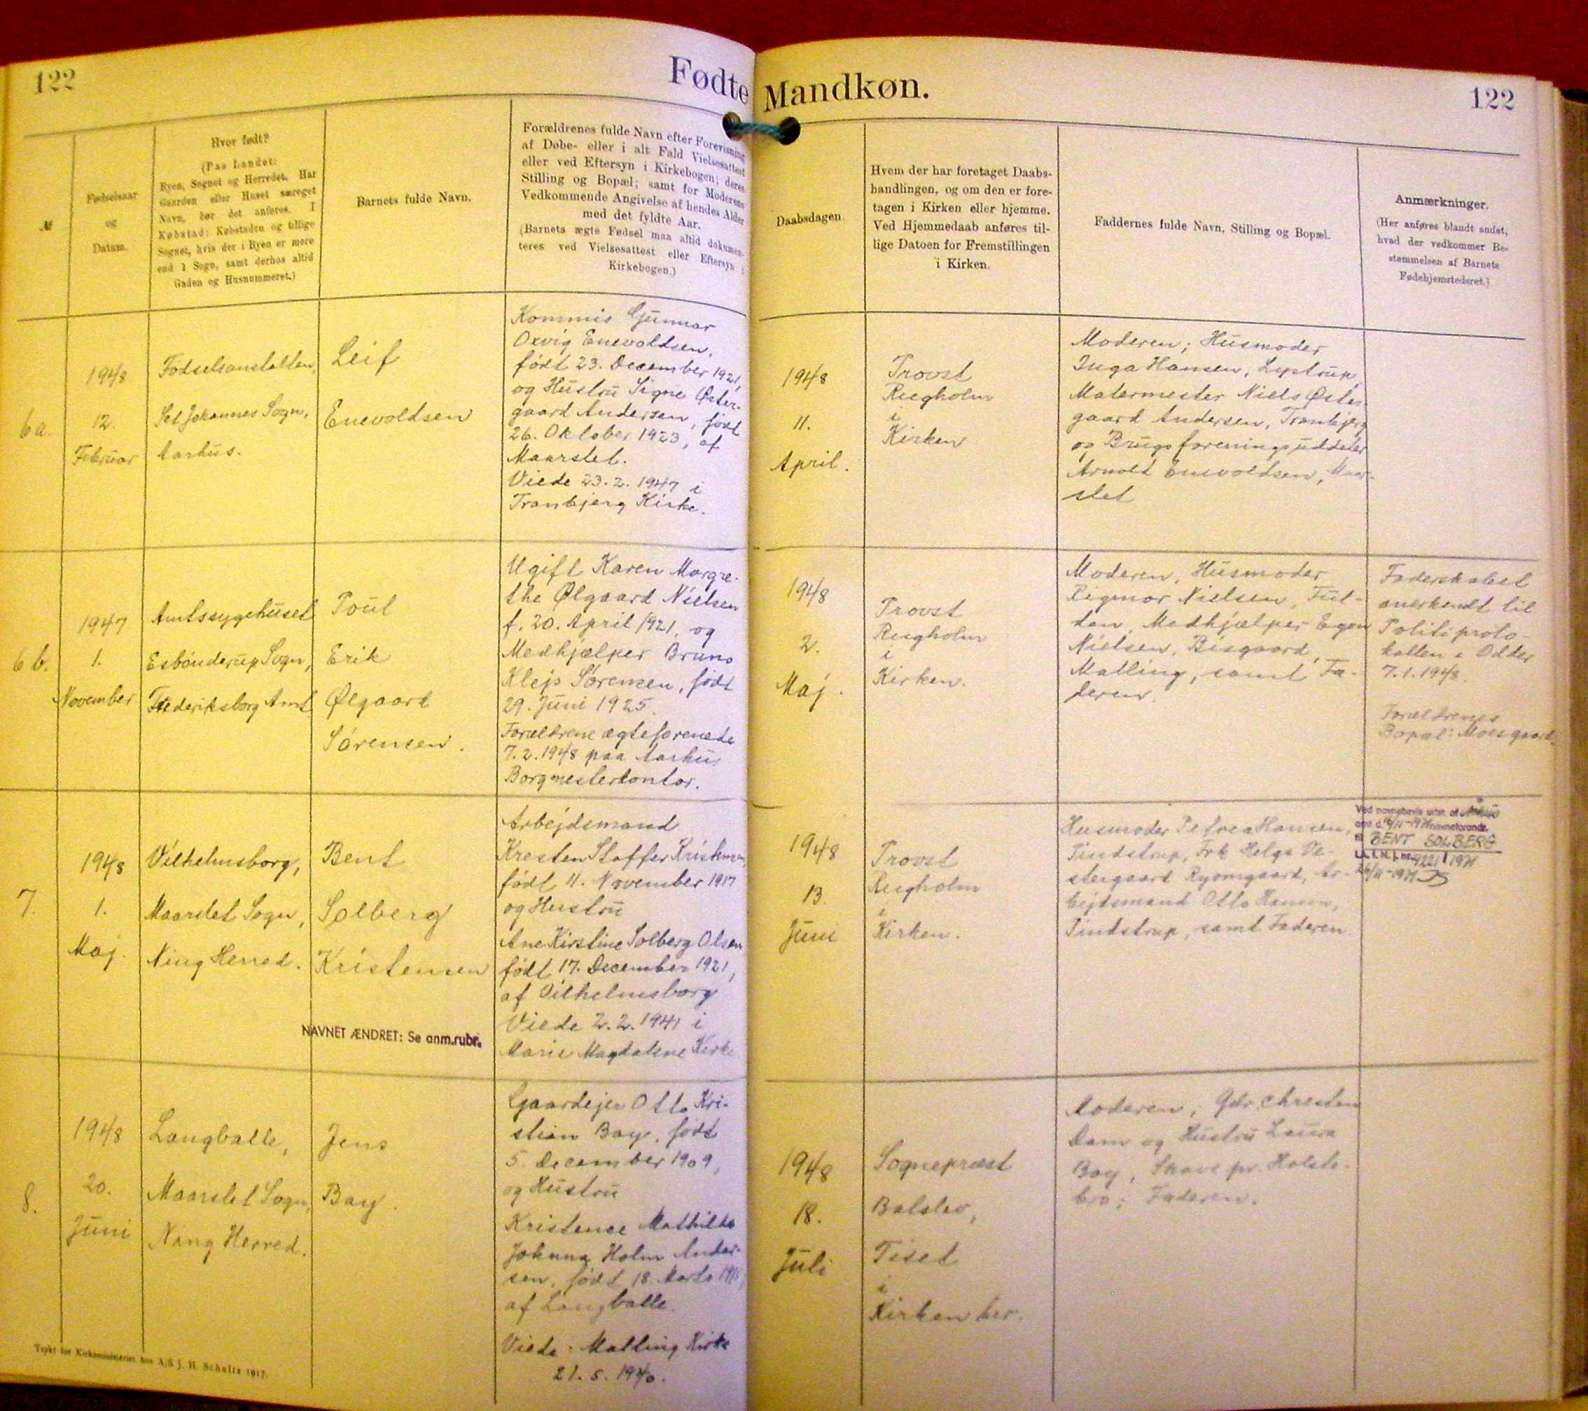 122
Fødte
Mandkøn.
122
№
Fødselsaar
og
Datum.
Hvor født?
(Paa Landet:
Byen, Sognet og Herredet. Har
Gaarden eller Huset særeget
Navn, bør det anføres. I
Købstad: Købstaden og tillige
Sognet, hvis der i Byen er mere
end 1 Sogn, samt derhos altid
Gaden og Husnummeret.)
Barnets fulde Navn.
Forældrenes fulde Navn efter Forevisning
af Døbe- eller i alt Fald Vielsesattest
eller ved Eftersyn i Kirkebogen; deres
Stilling og Bopæl; samt for Moderens
Vedkommende Angivelse af hendes Alder
med det fyldte Aar.
(Barnets ægte Fødsel maa altid dokumen-
teres ved Vielsesattest eller Eftersyn i
Kirkebogen.)
Daabsdagen.
Hvem der har foretaget Daabs-
handlingen, og om den er fore-
tagen i Kirken eller hjemme.
Ved Hjemmedaab anføres til-
lige Datoen for Fremstillingen
i Kirken.
Faddernes fulde Navn, Stilling og Bopæl.
Anmærkninger.
(Her anføres blandt andet,
hvad der vedkommer Be-
stemmelsen af Barnets
Fødehjemstedsret.)
6a.
1948
12.
Februar
Fødselsanstalten,
Sct Johannes Sogn,
Aarhus.
Leif
Enevoldsen
Kommis Gunnar
Oxvig Enevoldsen,
født 23. December 1921,
og Hustru Signe Øster-
gaard Andersen, født
26. Oktober 1923, af
Maarslet.
Viede 23.2.1947 i
Tranbjerg Kirke.
1948
11.
April.
Provst
Riegholm
i
Kirken
Moderen; Husmoder
Inga Hansen,
Malermester Niels Øster
gaard Andersen, Tranbjerg
og Brugsforeningsuddeler
Arnold Enevoldsen, Maar-
slet
6b.
1947
1.
November
Amtssygehuset
Esbønderup Sogn,
Frederiksborg Amt
Poul
Erik
Ølgaard
Sørensen.
Ugift Karen Margre-
the Ølgaard Nielsen
f. 20. April 1921, og
Medhjælper Bruno
Klejs Sørensen, født
29. Juni 1925.
Forældrene ægteforenede
7.2.1948 paa Aarhus
Borgmesterkontor.
1948
2.
Maj.
Provst
Riegholm
i
Kirken.
Moderen, Husmoder
Rigmor Nielsen, Ful-
den, Medhjælper Egon
Nielsen, Bisgaard,
Malling, samt Fa-
deren.
Faderskabet
anerkendt til
Politiproto-
kollen i Odder
7.1.1948.
Forældrenes
Bopæl: Moesgaard.
7.
1948
1.
Maj.
Vilhelmsborg,
Maarslet Sogn,
Ning Herred.
Bent
Solberg
Kristensen
NAVNET ÆNDRET: Se anm.rubr.
Arbejdsmand
Kresten Staffer Kristensen,
født 11. November 1917
og Hustru
Ane Kirstine Solberg Olsen
født 17. December 1921,
af Vilhelmsborg
Viede 2.2.1941 i
Marie Magdalene Kirke
1948
13.
Juni
Provst
Riegholm
i
Kirken.
Husmoder Petrea Hansen,
Pindstrup, Frk Helga Ve-
stergaard Ryomgaard, Ar-
bejdsmand Otto Hansen,
Pindstrup, samt Faderen.
Ved navnebevis udst. af
navneforandr.
til BENT SOLBERG
8.
1948
20.
Juni
Langballe,
Maarslet Sogn,
Ning Herred.
Jens
Bay.
Gaardejer Otto Kri-
stian Bay, født
5. December 1909,
og Hustru
Kristence Mathilde
Johanne Holm Ander-
sen, født 18. Marts
af Langballe.
Viede i Malling Kirke
21.5.1940.
1948
18.
Juli
Sognepræst
Balslev,
Tiset
i
Kirken her.
Moderen, Gdr. Chresten
Dam og Hustru Laura
Bay, Skave pr. Holste-
bro; Faderen.
Trykt for Kirkeministeriet hos A/S J. H. Schultz 1917.